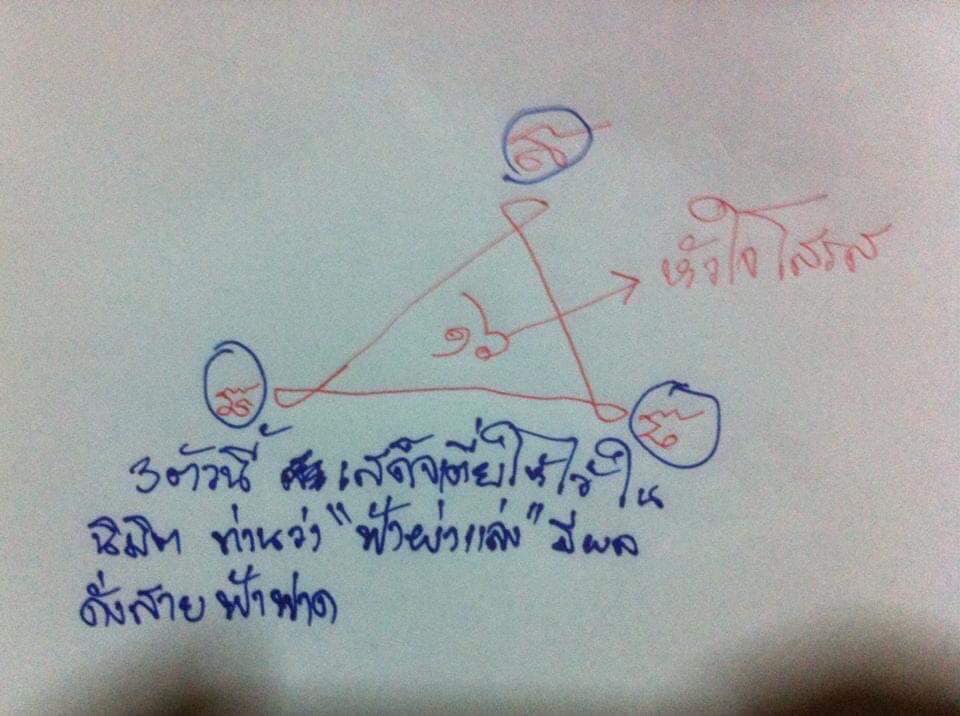 ๑๖
หัวใจโสรส
3 ตัวนี้ เสด็จเตี่ยให้ไว้ใน
นิมิต ท่านว่า "ฟ้าผ่าแล่ง" มีผล
ดั่งสายฟ้าฟาด